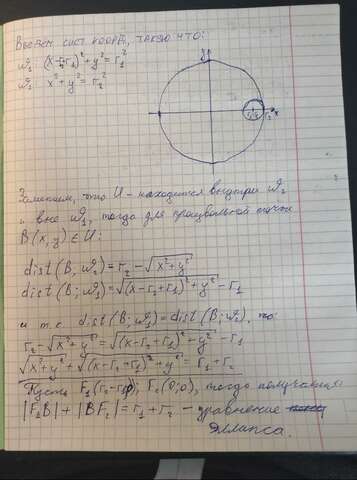 Введём сист. коорд., такую что:
ω₁: (x-r₂+r₁)²+y²=r₁²
ω₂: x²+y²=r₂²
y
x
Заметим, что U - находится внутри ω₂
и вне ω₁, тогда для произвольной точки
B(x,y) ∈ U:
dist(B; ω₂) = r₂ - √(x²+y²)
dist(B; ω₁) = √((x-r₂+r₁)²+y²) - r₁
и т.к. dist(B; ω₁) = dist(B; ω₂), то:
r₂ - √(x²+y²) = √((x-r₂+r₁)²+y²) - r₁
√(x²+y²) + √((x-r₂+r₁)²+y²) = r₁+r₂
Пусть F₁(r₂-r₁;0); F₂(0;0), тогда получаем:
|F₁B|+|BF₂| = r₁+r₂ - уравнение
эллипса.